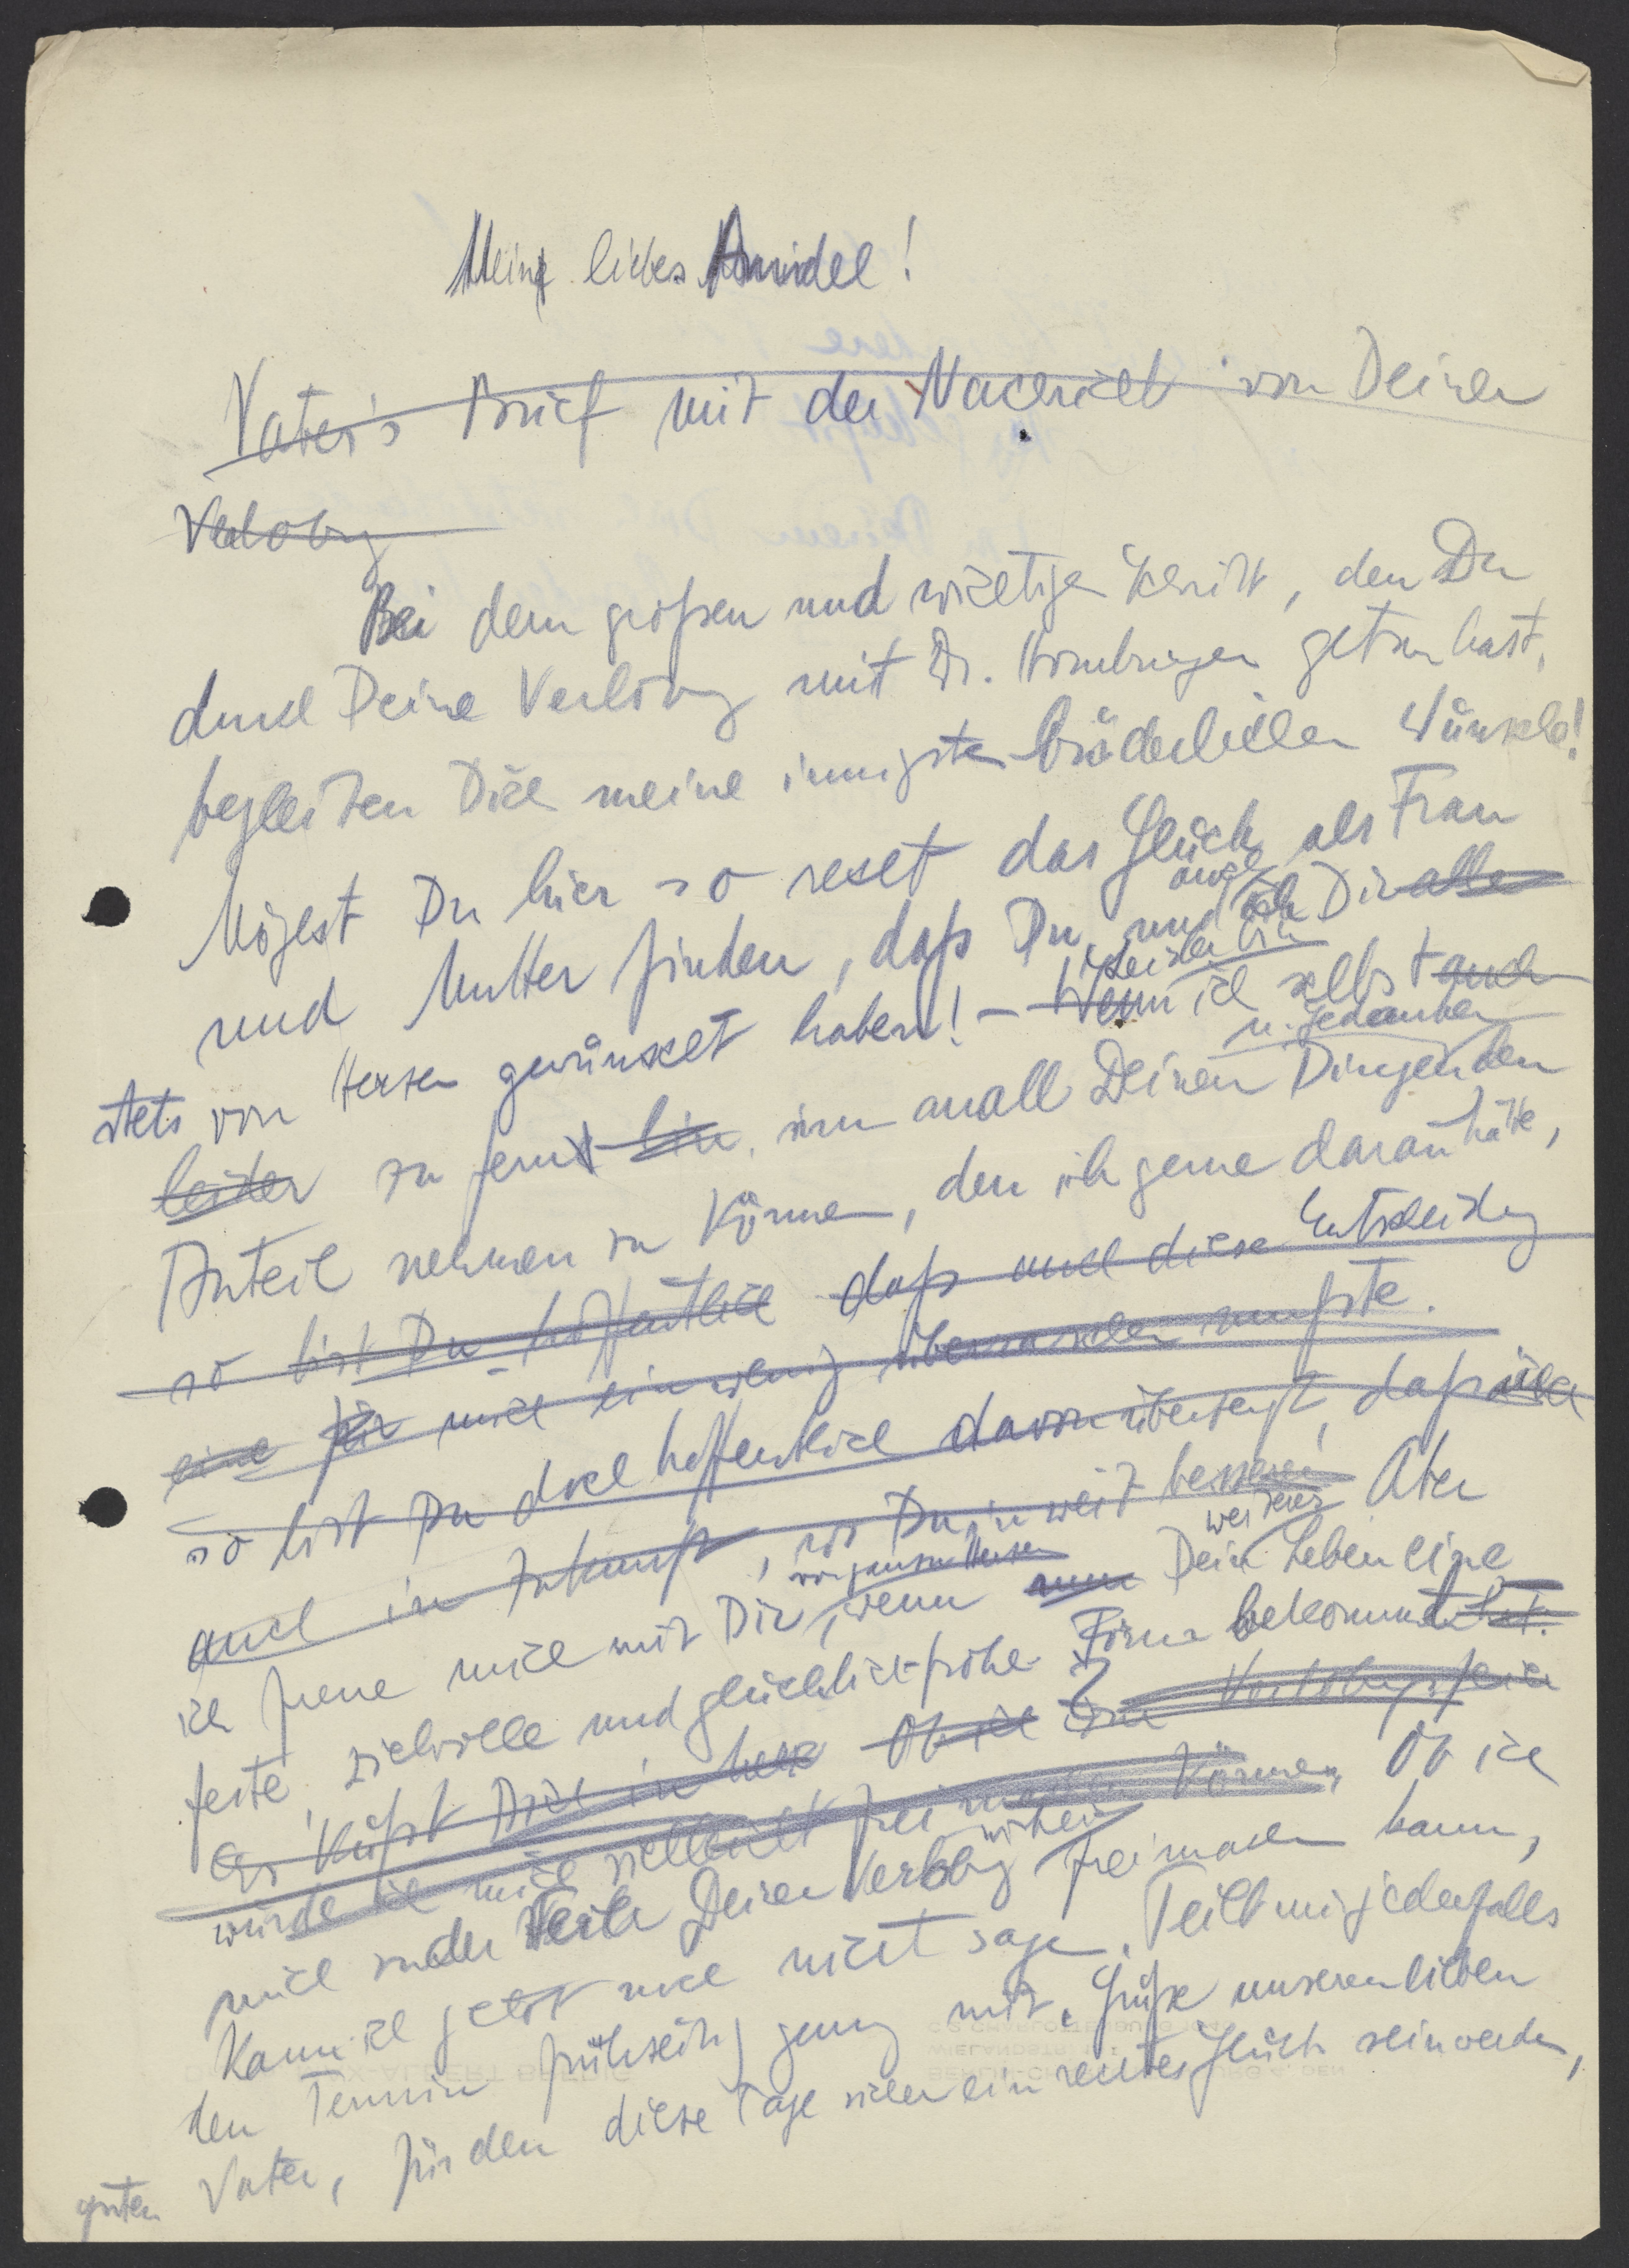 Mein liebes Annidel!
Vater's Brief mit der Nachricht von Deiner
Verlobung
Bei dem großen und wichtigen Schritt, den Du
durch Deine Verlobung mit Dr. getan hast,
begleiten Dich meine innigsten brüderlichen Wünsche!
Mögest Du hier so recht das Glück als Frau
und Mutter finden, daß Du, und auch ich Dir alle
stets von Herzen gewünscht haben! – Wenn ich selbst auch
leider bin
u. Gedanken
leider zu fern bin, um an all Deinen Dingen den
Anteil nehmen zu können, den ich gerne daran hätte,
so bist Du hoffentlich daß auch diese Entscheidung
eine für mich ein wenig überraschen mußte.
so bist Du doch hoffentlich davon überzeugt, daß ich
auch in Zukunft, wo Du in weit besserer
weiteres Aber
von ganzem Herzen
ich freue mich mit Dir, wenn nun Dein Leben eine
feste, zielvolle und glücklich-frohe Form bekommt hat.
Es küßt Dich in Ob ich zur Verlobungsfeier
würde ich mich vielleicht frei machen können, Ob ich
mich zu der Feier Deiner Verlobung freimachen kann,
kann ich jetzt noch nicht sagen. Teilt mir jedenfalls
den Termin frühzeitig genug mit. Grüße unseren lieben
guten Vater, für den diese Tage sicher ein rechtes Glück sein werden,